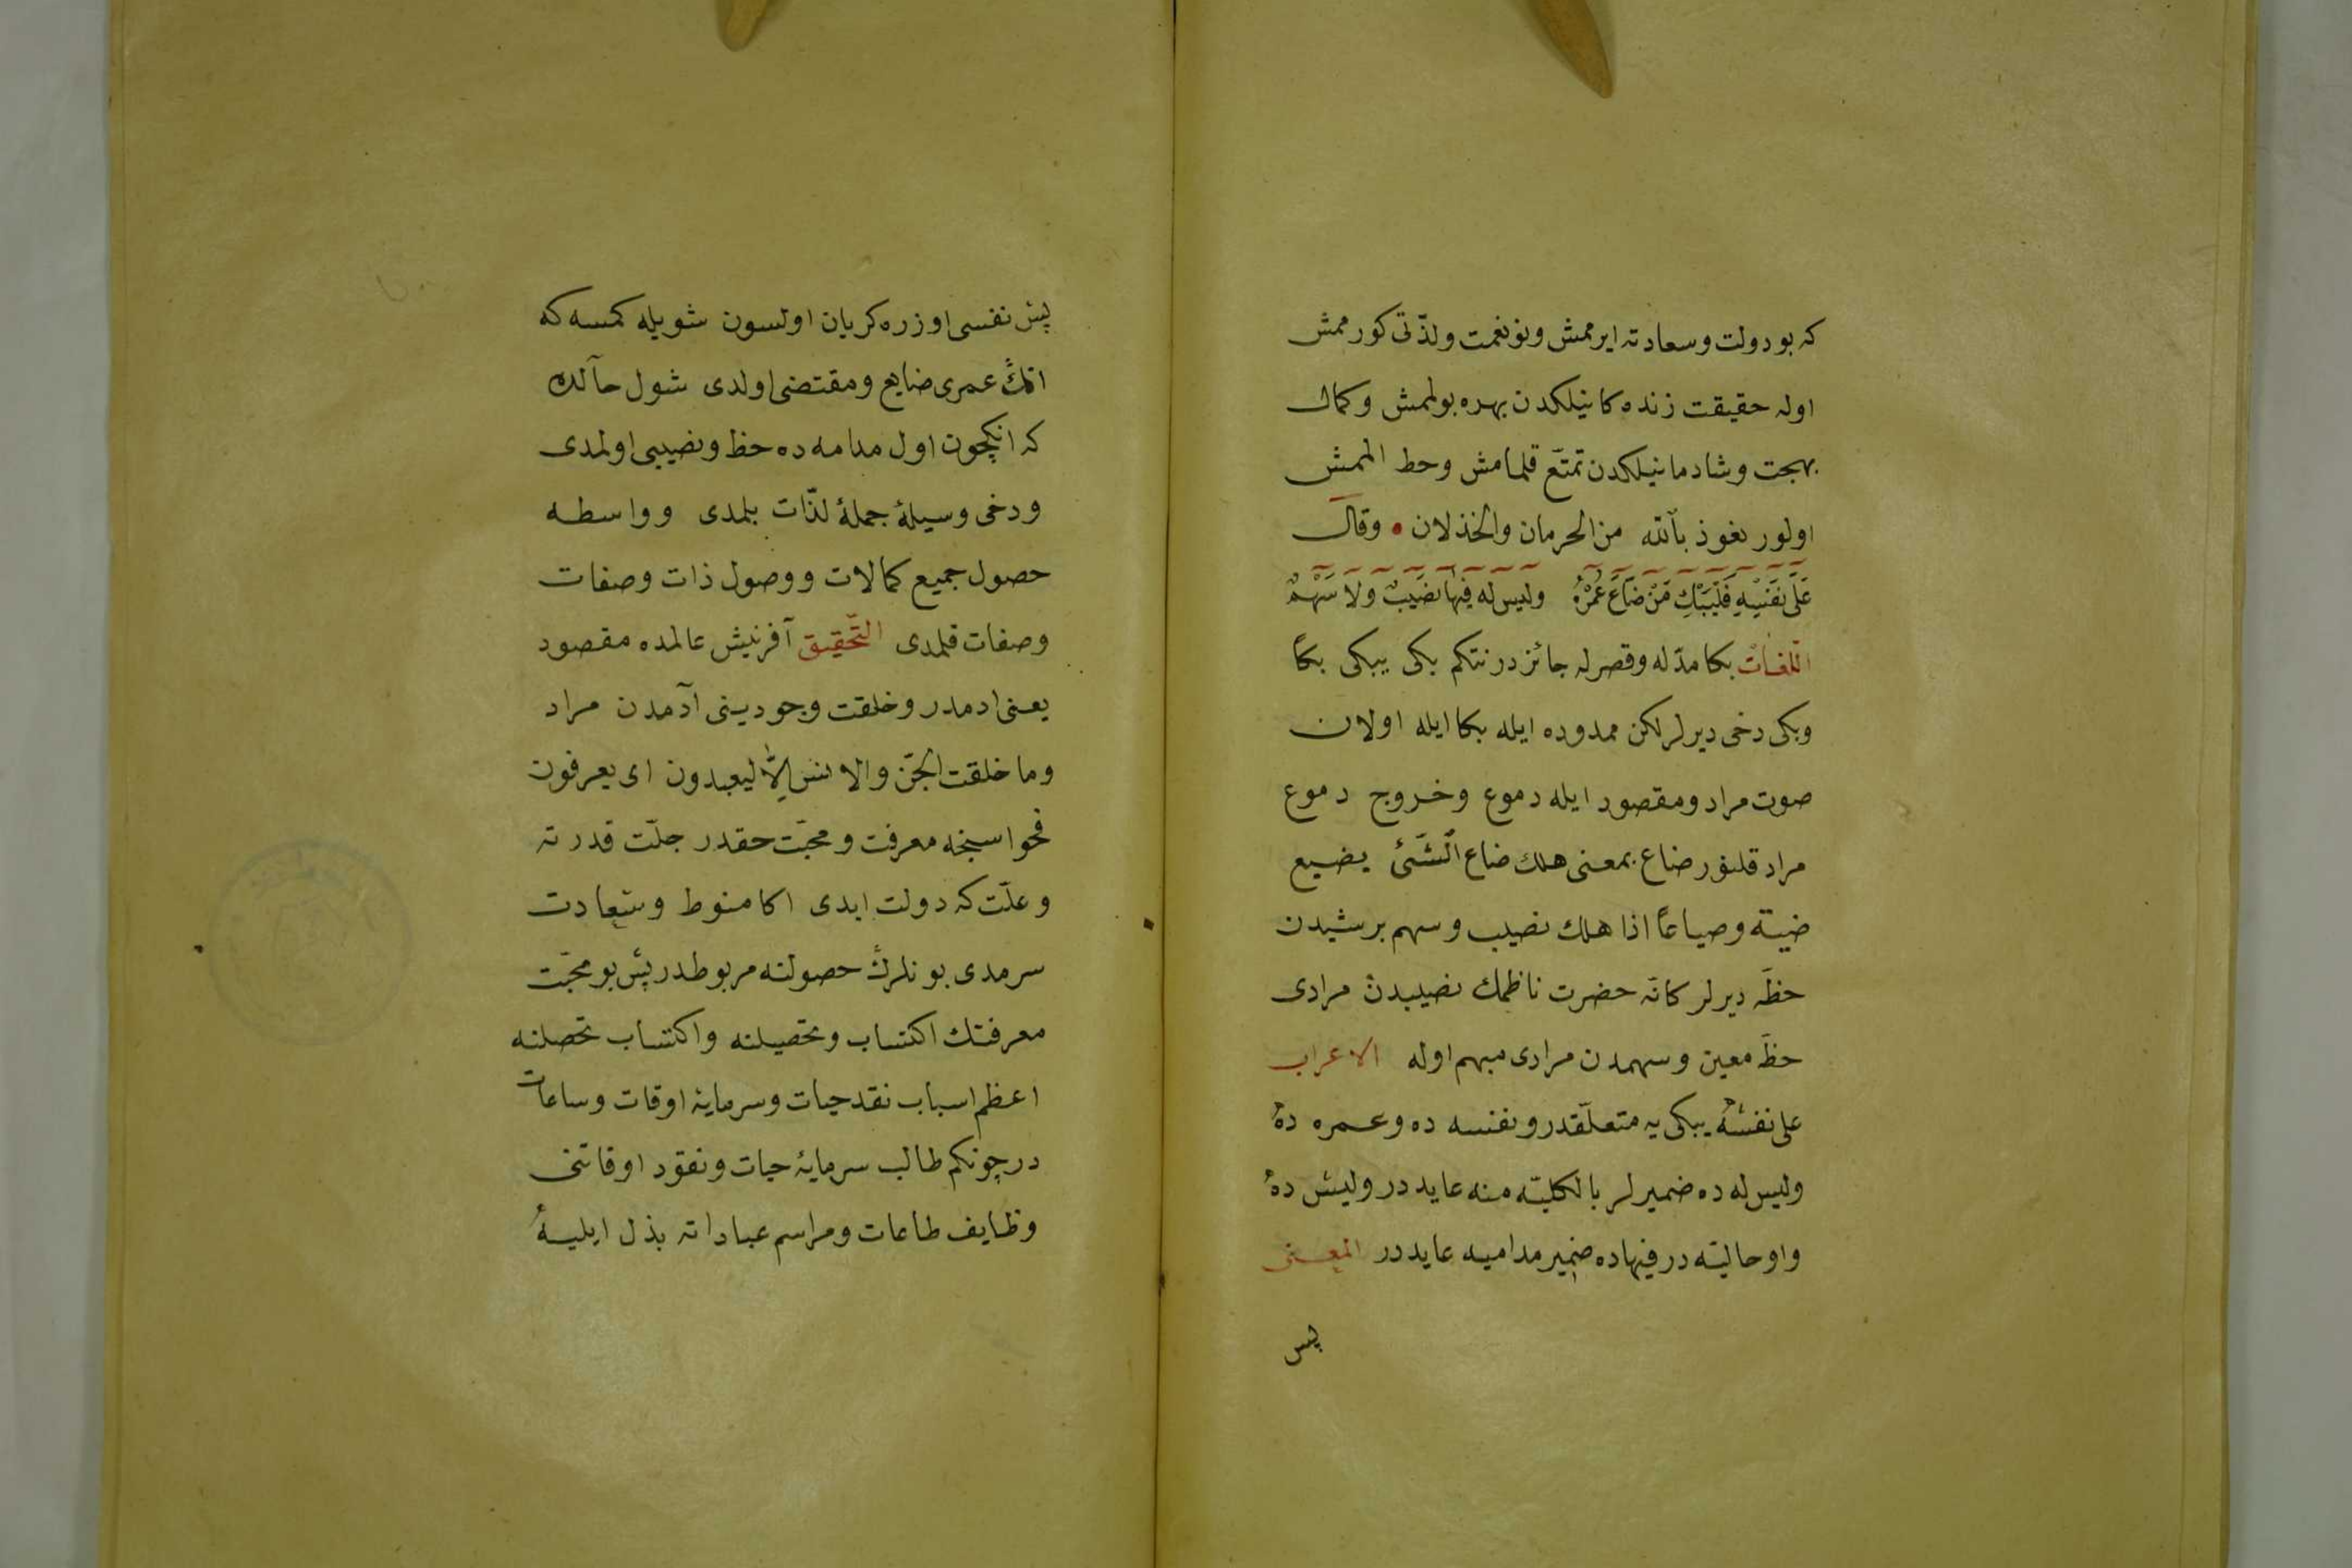 که بو دولت وسعادته ایرممش ونو نعمت ولذّتی کورممش
اوله حقیقت زنده کانیلکدن بهره بولممش وکمال
بهجت وشادمانیلکدن تمتّع قلمامش وحط الممش
اولور نعوذ بالله من الحرمان والخذلان • وقال
عَلَى نَفْسِهِ فَلْيَبْكِ مَنْ ضَاعَ عُمْرُهُ وليس له فيها نصيبٌ ولا سَهْمُ
اللغات بکا مدّله وقصرله جائزدر نتکم بکی یبکی بکاً
وبکی دخی دیرلر لکن ممدوده ایله بکا ایله اولان
صوت مراد ومقصور ایله دموع وخروج دموع
مراد قلنور ضاع بمعنی هلك ضاع الشّئ یضیع
ضیة وضیاعاً اذا هلك نصیب وسهم بر شیدن
حظّه دیرلر کانّه حضرت ناظمك نصیبدن مرادی
حظّ معین وسهمدن مرادی مبهم اوله الاعراب
علی نفسه یبکی یه متعلّقدر ونفسه ده وعمره ده
ولیس له ده ضمیرلر بالکلیّه منه عایددر ولیس ده
واو حالیّه در فیهاده ضمیر مدامیه عایددر المعنی
پس
پس نفسی اوزره کریان اولسون شویله کمسه که
انك عمری ضایع ومقتضی اولدی شول حالده
که انکچون اول مدامه ده حظ ونصیبی اولمدی
ودخی وسیلهٔ جملهٔ لذّات بلمدی وواسطه
حصول جمیع کمالات ووصول ذات وصفات
وصفات قلمدی التّحقیق آفرنیش عالمده مقصود
یعنی ادمدر وخلقت وجودینی آدمدن مراد
وما خلقت الجنّ والانس الّا لیعبدون ای یعرفون
فحواسنجه معرفت ومحبّت حقدر جلّت قدرته
وعلّت که دولت ابدی اکا منوط وسعادت
سرمدی بونلرڭ حصولنه مربوطدر پس بو محبّت
معرفتك اکتساب وتحصیلنه واکتساب تحصلنه
اعظم اسباب نقد حیات وسرمایهٔ اوقات وساعات
در چونکم طالب سرمایهٔ حیات ونقود اوقاتنی
وظایف طاعات ومراسم عباداته بذل ایلیه